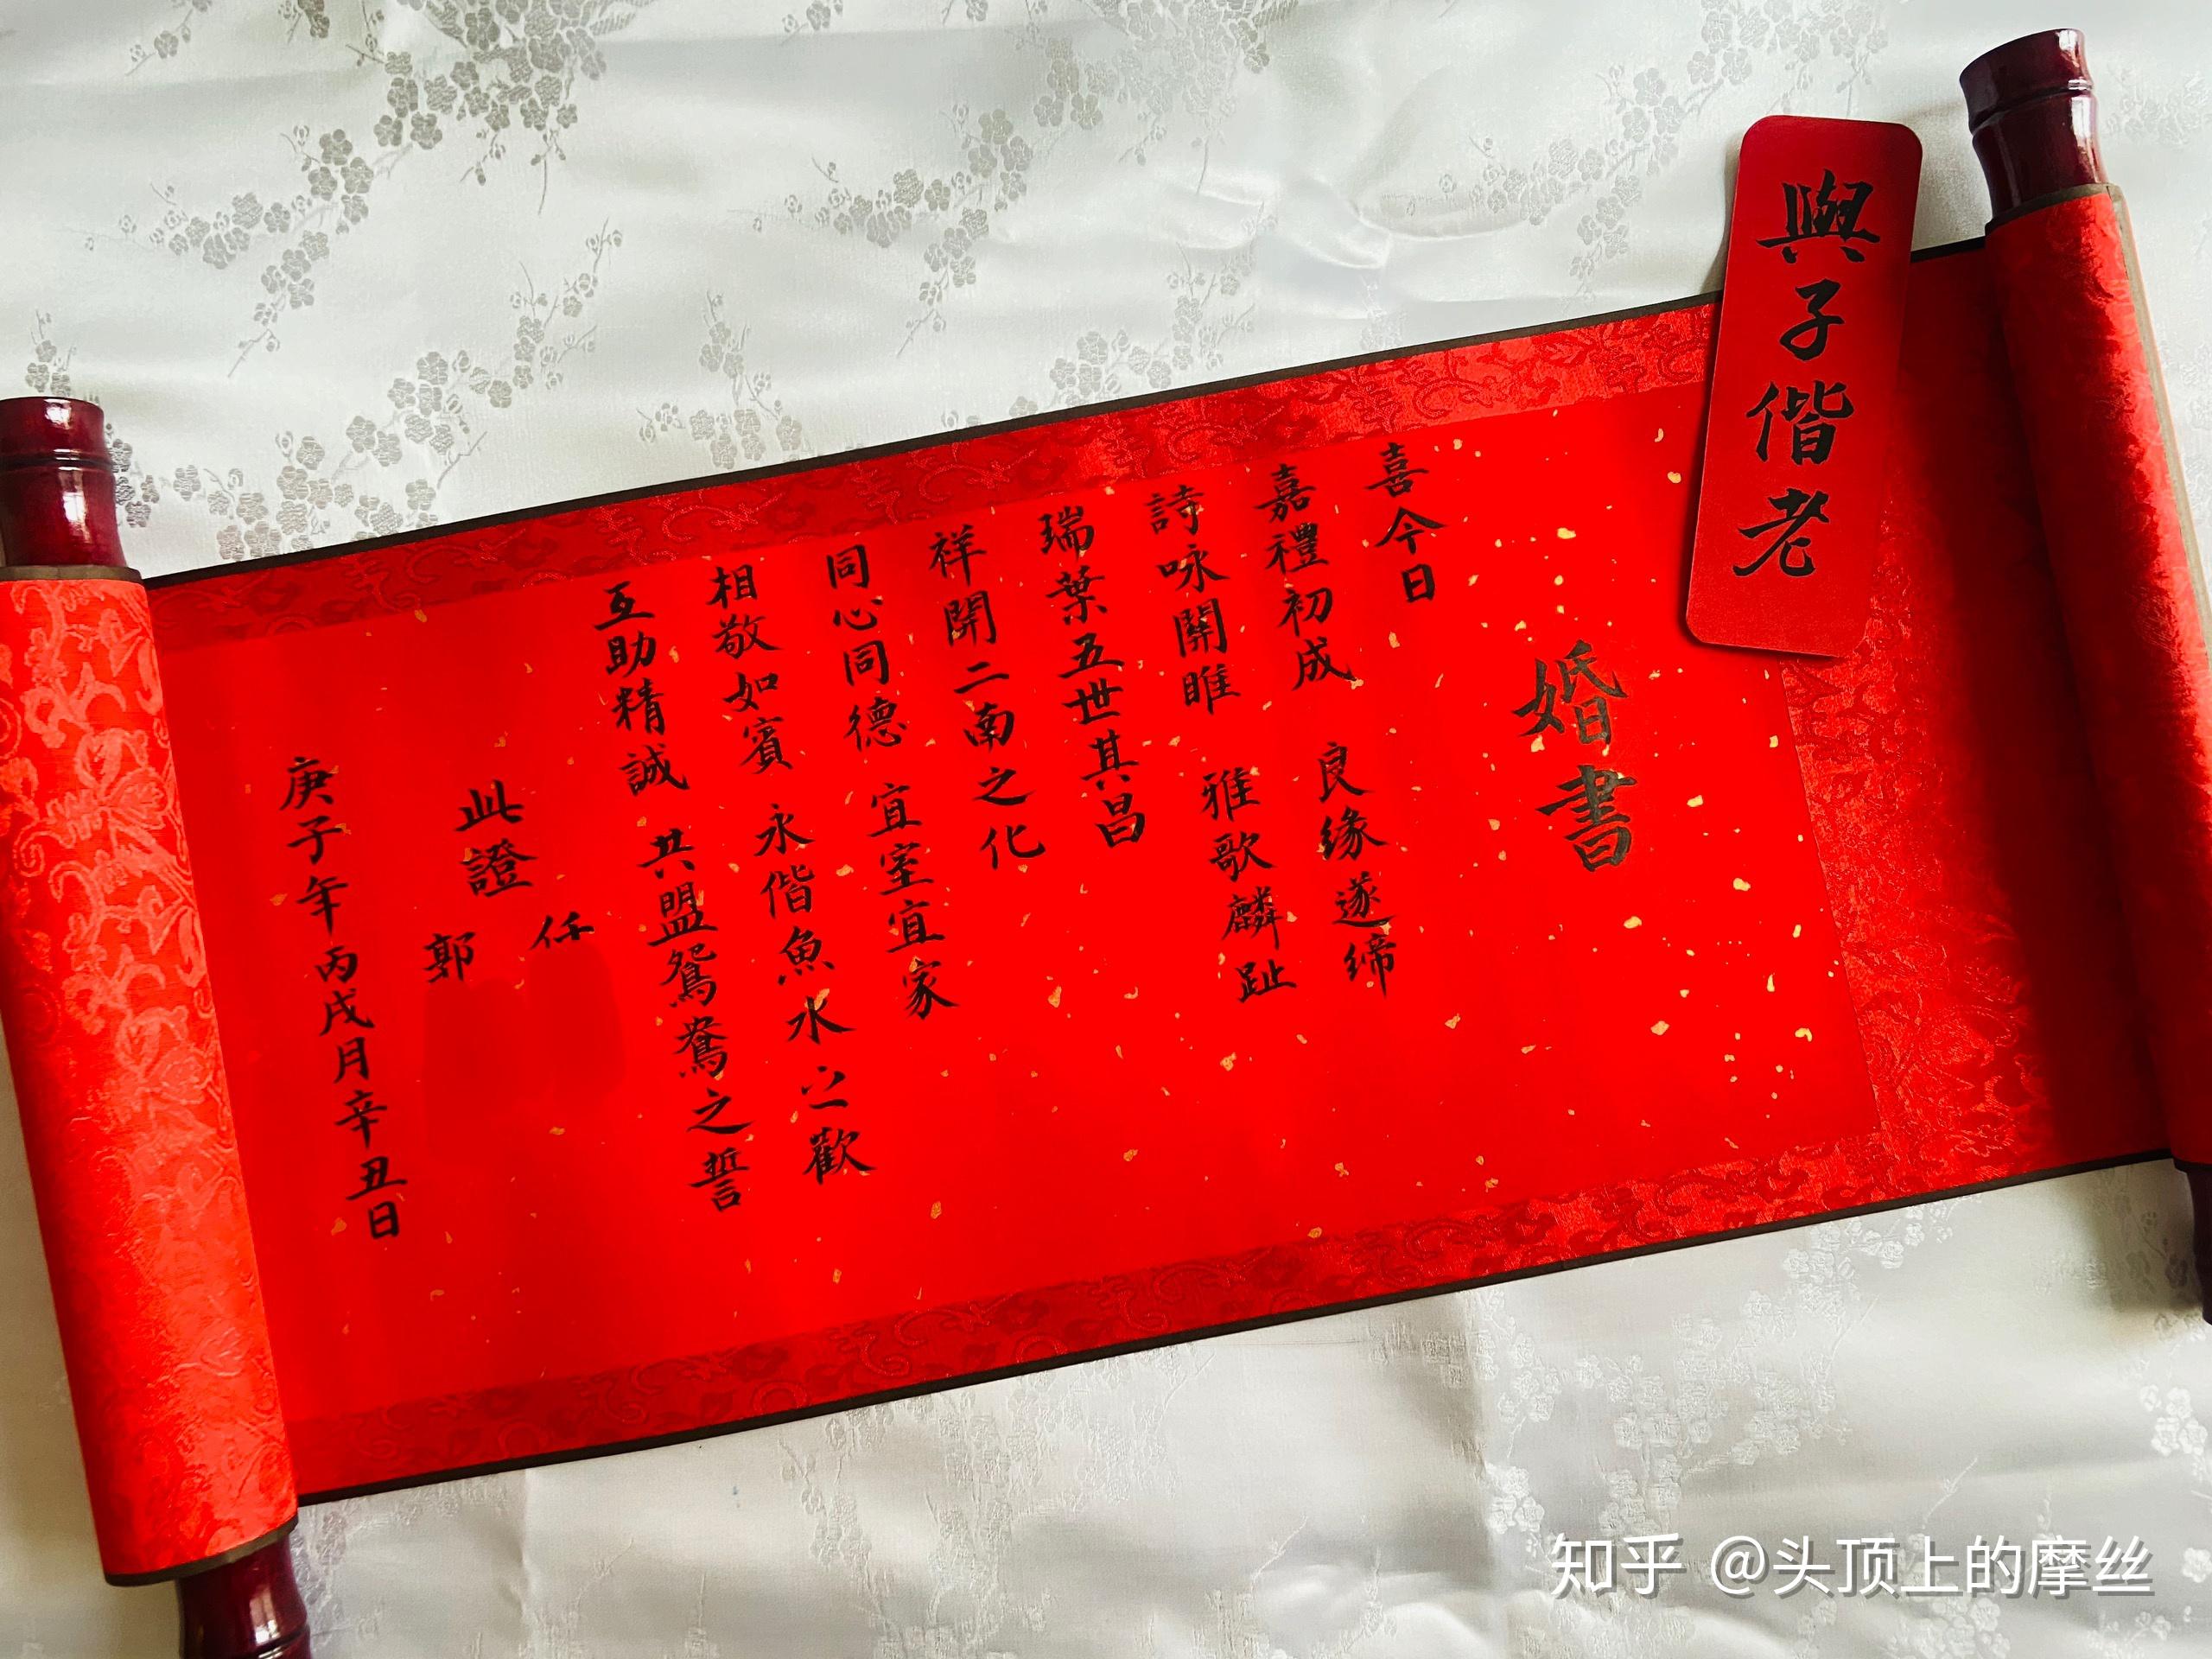 與子偕老
婚書
喜今日
嘉禮初成 良缘遂缔
詩咏關雎 雅歌麟趾
瑞葉五世其昌
祥開二南之化
同心同德 宜室宜家
相敬如賓 永偕魚水之歡
互助精誠 共盟鴛鴦之誓
任
此證
郭
庚子年丙戌月辛丑日
知乎 @头顶上的摩丝